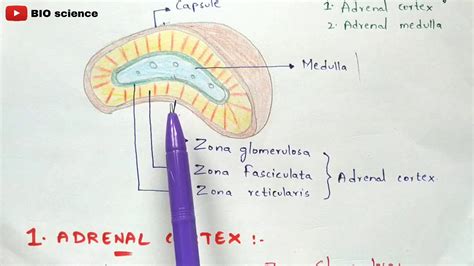 BIO science
1. Adrenal cortex
2. Adrenal medulla
Capsule
Medulla
Zona glomerulosa
Zona Fasciculata
Zona reticularis
Adrenal cortex
1. ADRENAL CORTEX :-